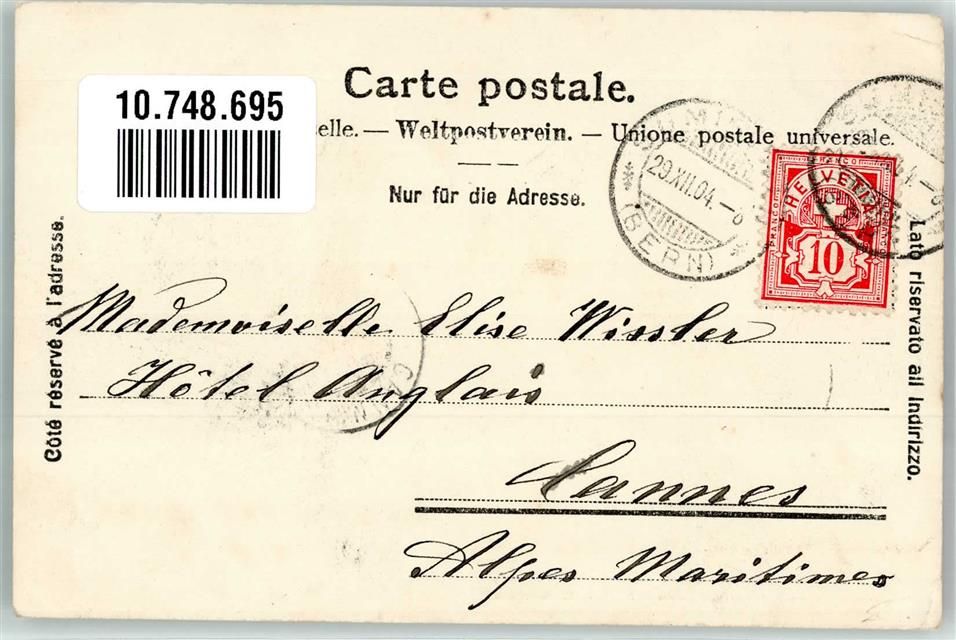 Carte postale.
10.748.695
elle. — Weltpostverein. — Unione postale universale.
Nur für die Adresse.
29.XII.04.-8
(BERN)
FRANCO
HELVETIA
10
Côté réservé à l'adresse.
Lato riservato all Indirizzo.
Mademoiselle Elise Wissler
Hôtel Anglais
Cannes
Alpes Maritimes